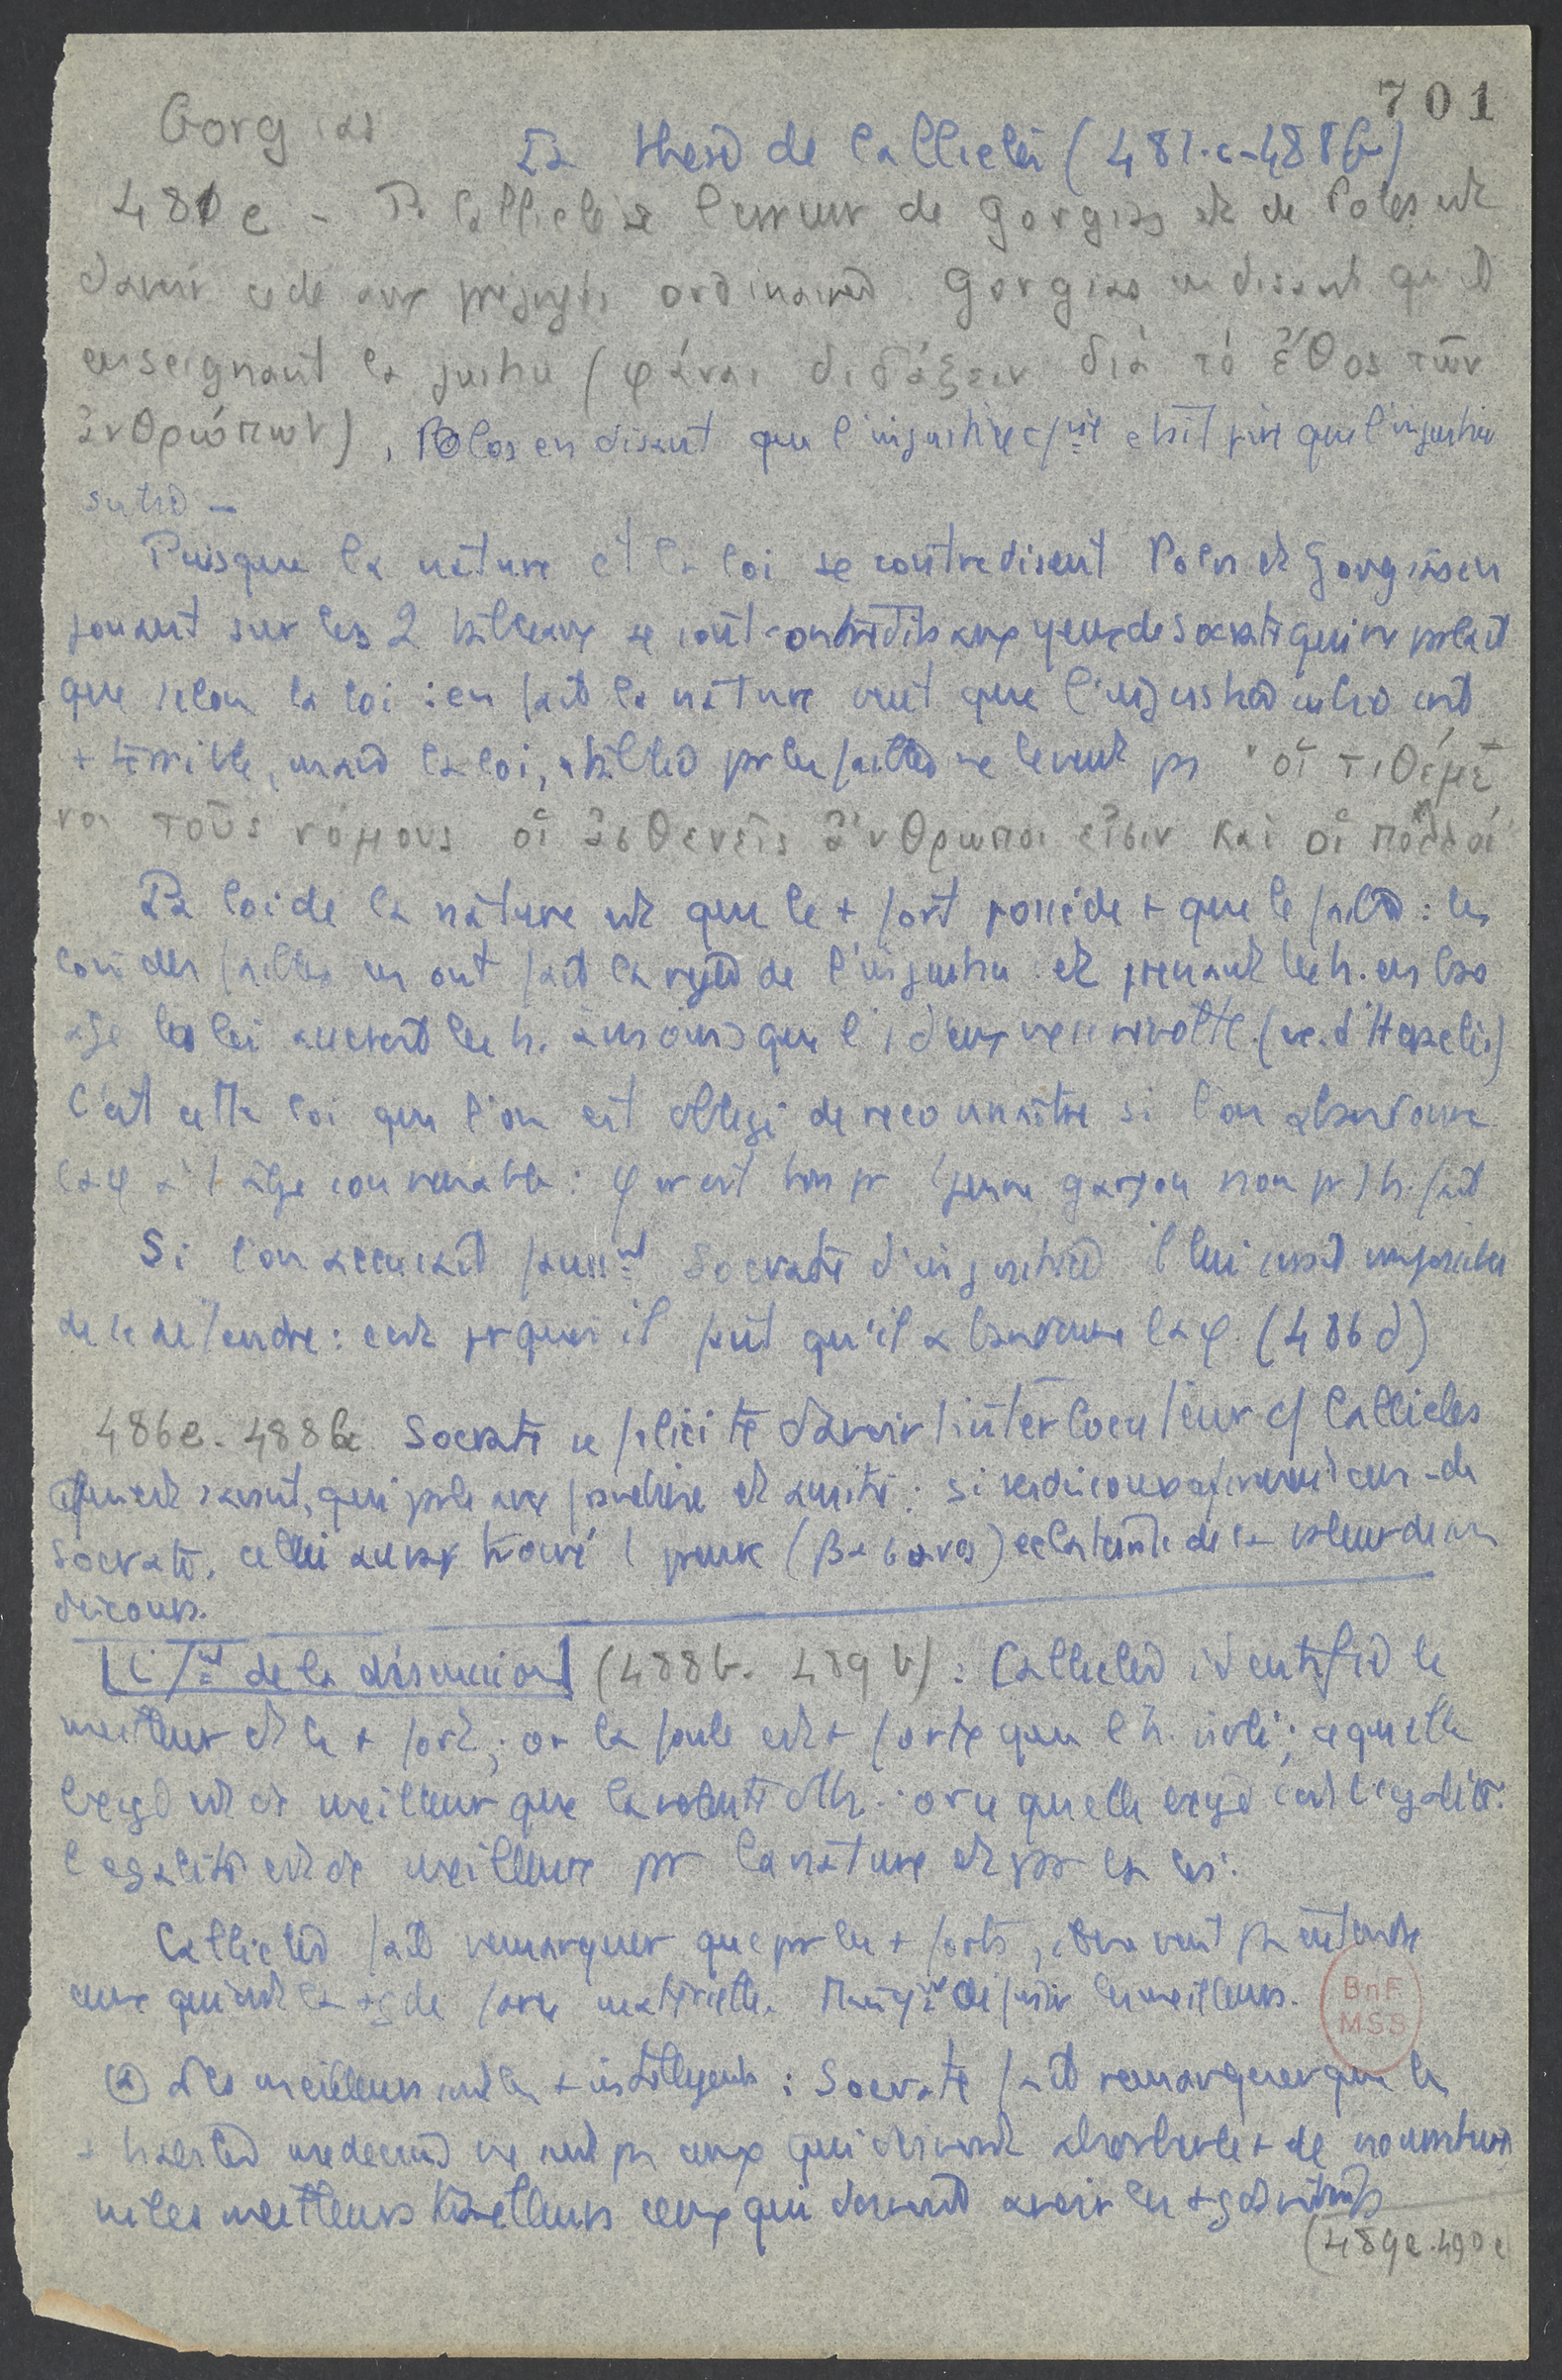 701
Gorgias
La thèse de Calliclès (481.c-488b)
481c - P. Calliclès l'erreur de Gorgias et de Polos est
d'avoir cédé aux préjugés ordinaires. Gorgias en disant qu'il
enseignait la justice (φάναι διδάξειν διὰ τὸ ἔθος τῶν
ἀνθρώπων), Polos en disant que l'injustice c/mise était pire que l'injustice
subie -
Puisque la nature et la loi se contredisent Polos et Gorgias en
jouant sur les 2 tableaux se sont contredits aux yeux de Socrate qui ne parlait
que selon la loi : en fait la nature veut que l'injustice subie soit
+ terrible, mais la loi, établie par les faibles ne le veut pas "οἱ τιθέμε
νοι τοὺς νόμους οἱ ἀσθενεῖς ἄνθρωποι εἰσιν καὶ οἱ πολλοί"
La loi de la nature est que le + fort possède + que le faible : les
lois des faibles en ont fait la règle de l'injustice et prenant les h. en bas
âge les lois les h. à moins que l'1 d'eux ne se révolte. (ex. d'Héraclès)
C'est cette loi que l'on est obligé de reconnaître si l'on abandonne
la φ à l'âge convenable : φ er est bon pr 1 jeune garçon non pr 1 h. fait
Si l'on accusait faussmt Socrate d'injustice il lui serait impossible
de se défendre : c'est pourquoi il faut qu'il abandonne la φ. (486d)
486e. 488b Socrate se félicite d'avoir 1 interlocuteur c/ Calliclès
qui est savant, qui parle avec franchise et amitié : si ses discours
Socrate, celui aura trouvé 1 preuve (βάσανος) éclatante de la valeur de ses
discours.
de la discussion (488b. 489b) : Calliclès identifie le
meilleur et le + fort ; or la foule est + forte que l'h. isolé ; ce qu'elle
exige est dc meilleur que la volonté d'1 h. : or ce qu'elle exige c'est l'égalité.
l'égalité est dc meilleure par la nature et par la loi.
Calliclès fait remarquer que par les + forts, il ne veut pas entendre
ceux qui ont la + gde force matérielle. définir les meilleurs.
(a) les meilleurs sont les + intelligents : Socrate fait remarquer que les
+ habiles médecins ne sont pas ceux qui doivent absorber le + de nourriture
ni les meilleurs ceux qui doivent avoir les + gds
(489e.490e
BnF
MSS